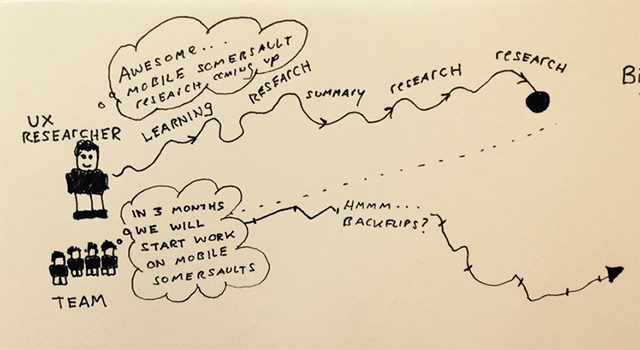 AWESOME...
MOBILE SOMERSAULT
RESEARCH COMING UP
UX
RESEARCHER
LEARNING
RESEARCH
SUMMARY
RESEARCH
RESEARCH
IN 3 MONTHS
WE WILL
START WORK
ON MOBILE
SOMERSAULTS
HMMM...
BACKFLIPS?
TEAM